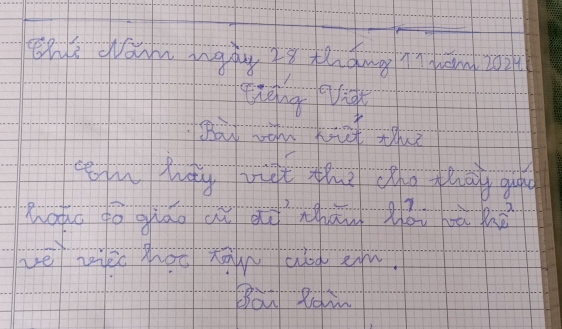 Thứ Năm ngày 28 tháng 11 năm 2024
Tiếng Việt
Bài văn viết thư
Em hãy viết thư cho thầy giáo
hoặc cô giáo cũ để thăm hỏi và kể
về việc học tập của em.
Bài làm